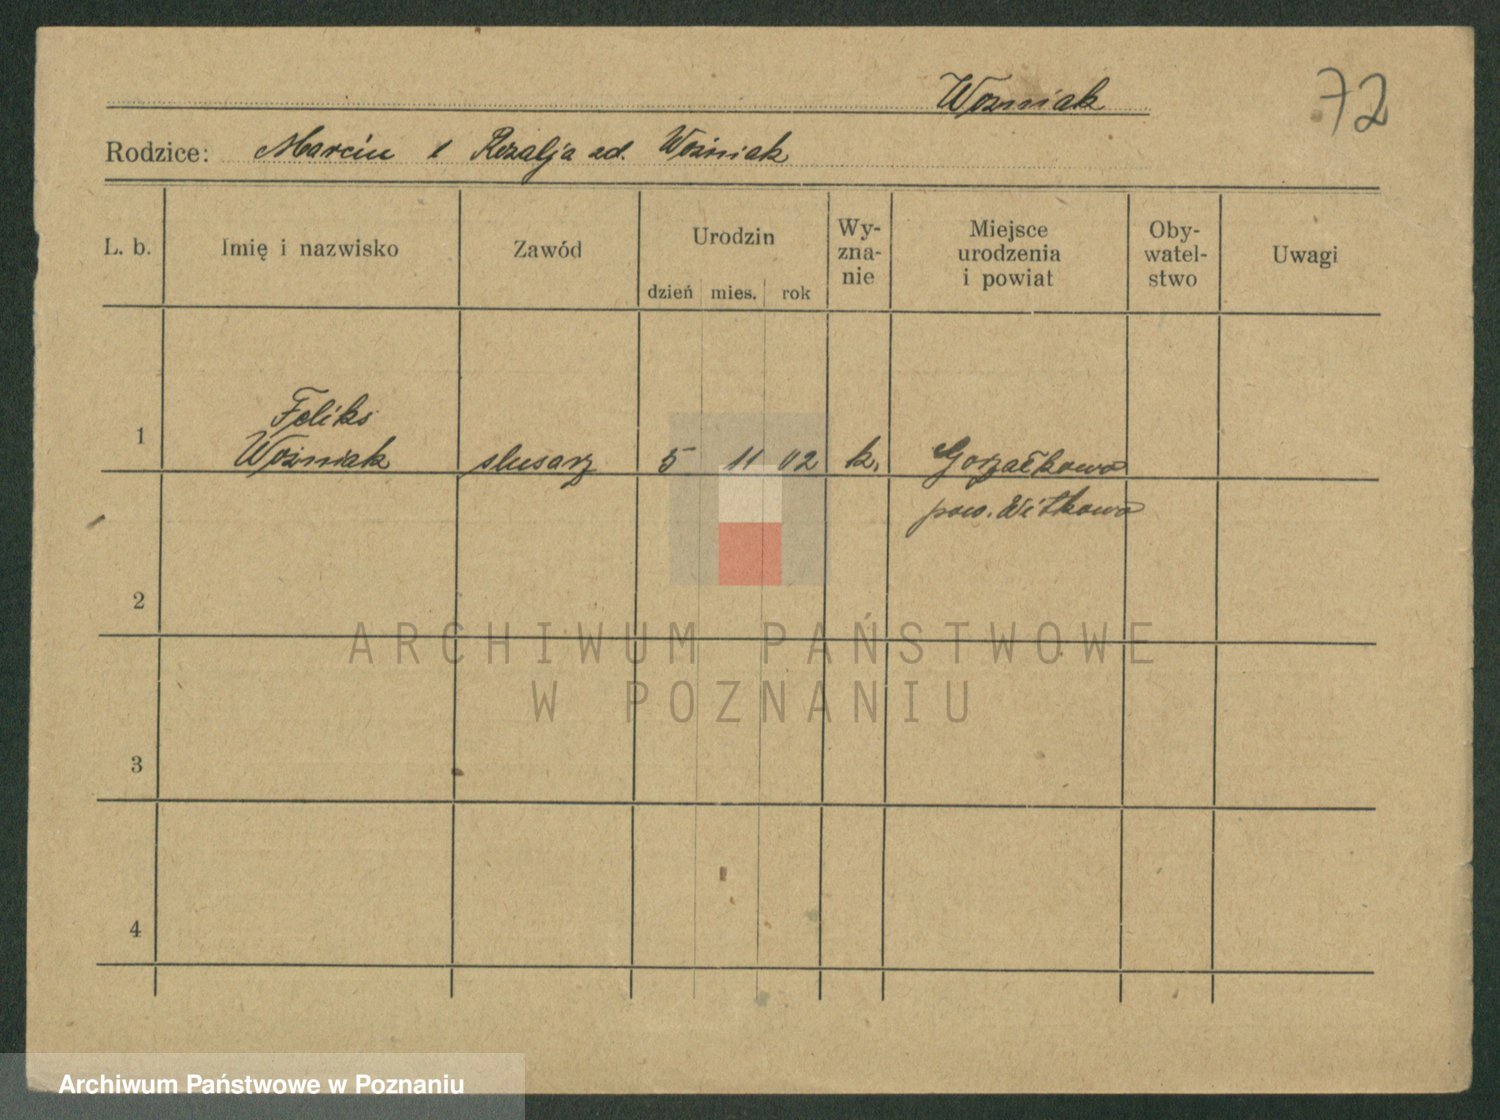 Woźniak
72
Rodzice: Marcin i Rozalja zd. Woźniak
L. b.
Imię i nazwisko
Zawód
Urodzin
dzień mies. rok
Wy-
zna-
nie
Miejsce
urodzenia
i powiat
Oby-
watel-
stwo
Uwagi
Feliks
1 Woźniak slusarz 5 11 02 k. Gorzałkowo
pow. Witkowo
2
ARCHIWUM PAŃSTWOWE
W POZNANIU
3
4
Archiwum Państwowe w Poznaniu